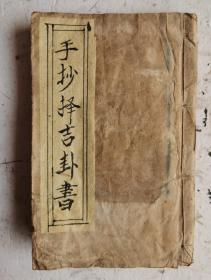 手抄择吉卦書